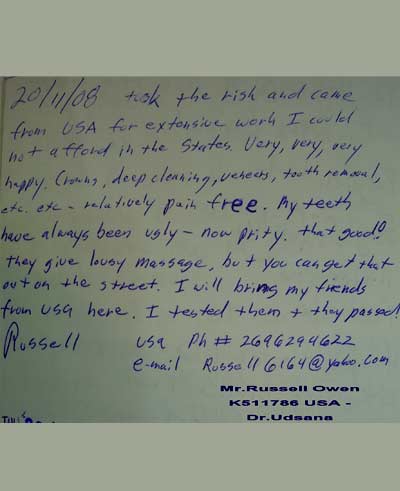 20/11/08 took the risk and came
from USA for extensive work I could
not afford in the States. Very, very, very
happy. Crowns, deep cleaning, veneers, tooth removal,
etc. etc - relatively pain free. My teeth
have always been ugly - now prity. that good!
they give lousy massage, but you can get that
out on the street. I will bring my friends
from usa here. I tested them + they passed!
Russell usa Ph # 2696294622
e-mail Russell6164@yahoo.com
Mr.Russell Owen
K511786 USA -
Dr.Udsana